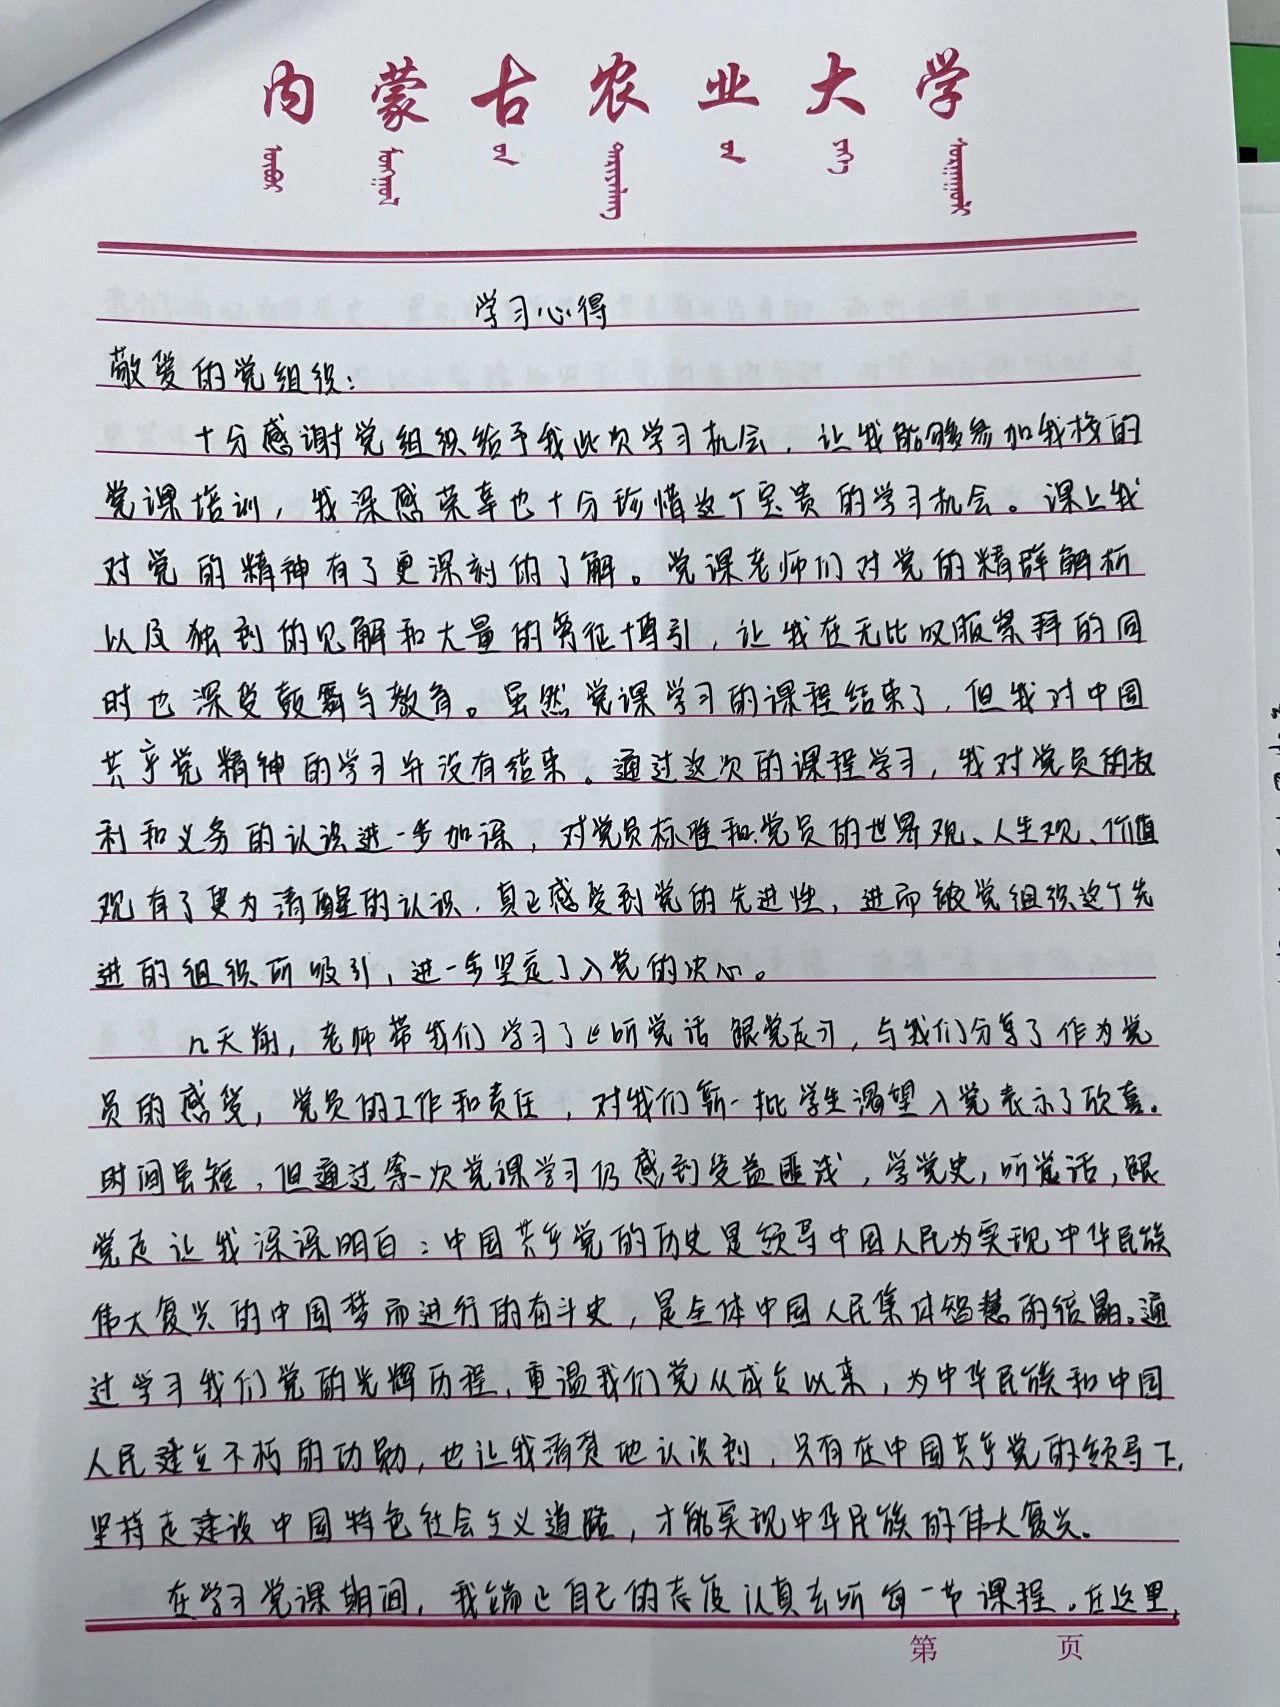 内蒙古农业大学
学习心得
敬爱的党组织：
十分感谢党组织给予我此次学习机会，让我能够参加我校的
党课培训，我深感荣幸也十分珍惜这个宝贵的学习机会。课上我
对党的精神有了更深刻的了解。党课老师们对党的精辟解析
以及独到的见解和大量的旁征博引，让我在无比叹服崇拜的同
时也深受鼓舞与教育。虽然党课学习的课程结束了，但我对中国
共产党精神的学习并没有结束。通过这次的课程学习，我对党员的权
利和义务的认识进一步加深，对党员标准和党员的世界观、人生观、价值
观有了更为清醒的认识，真正感受到党的先进性，进而被党组织这个先
进的组织所吸引，进一步坚定了入党的决心。
几天前，老师带我们学习了《听党话 跟党走》，与我们分享了作为党
员的感受，党员的工作和责任，对我们新一批学生渴望入党表示了欣喜。
时间虽短，但通过第一次党课学习仍感到受益匪浅，学党史，听党话，跟
党走让我深深明白：中国共产党的历史是领导中国人民为实现中华民族
伟大复兴的中国梦而进行的奋斗史，是全体中国人民集体智慧的结晶。通
过学习我们党的光辉历程，重温我们党从成立以来，为中华民族和中国
人民建立不朽的功勋，也让我清楚地认识到，只有在中国共产党的领导下，
坚持走建设中国特色社会主义道路，才能实现中华民族的伟大复兴。
在学习党课期间，我端正自己的态度认真去听每一节课程。在这里，
第 页